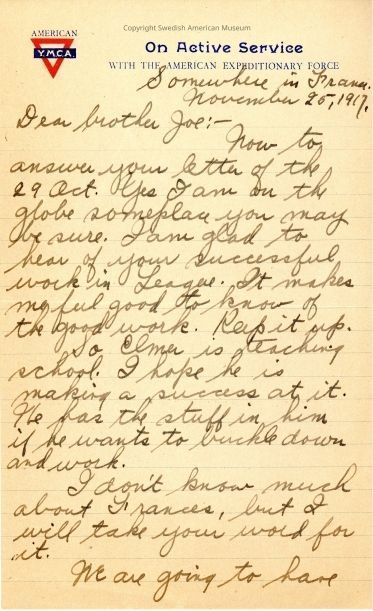 Copyright Swedish American Museum
AMERICAN
Y.M.C.A.
On Active Service
WITH THE AMERICAN EXPEDITIONARY FORCE
Somewhere in France.
November 25, 1917.
Dear brother Joe:-
Now to
answer your letter of the
29 Oct. Yes I am on the
globe someplace you may
be sure. I am glad to
hear of your successful
work in League. It makes
me feel good to know of
the good work. Keep it up.
So Elmer is teaching
school. I hope he is
making a success at it.
He has the stuff in him
if he wants to buckle down
and work.
I don't know much
about Frances, but I
will take your word for
it.
We are going to have